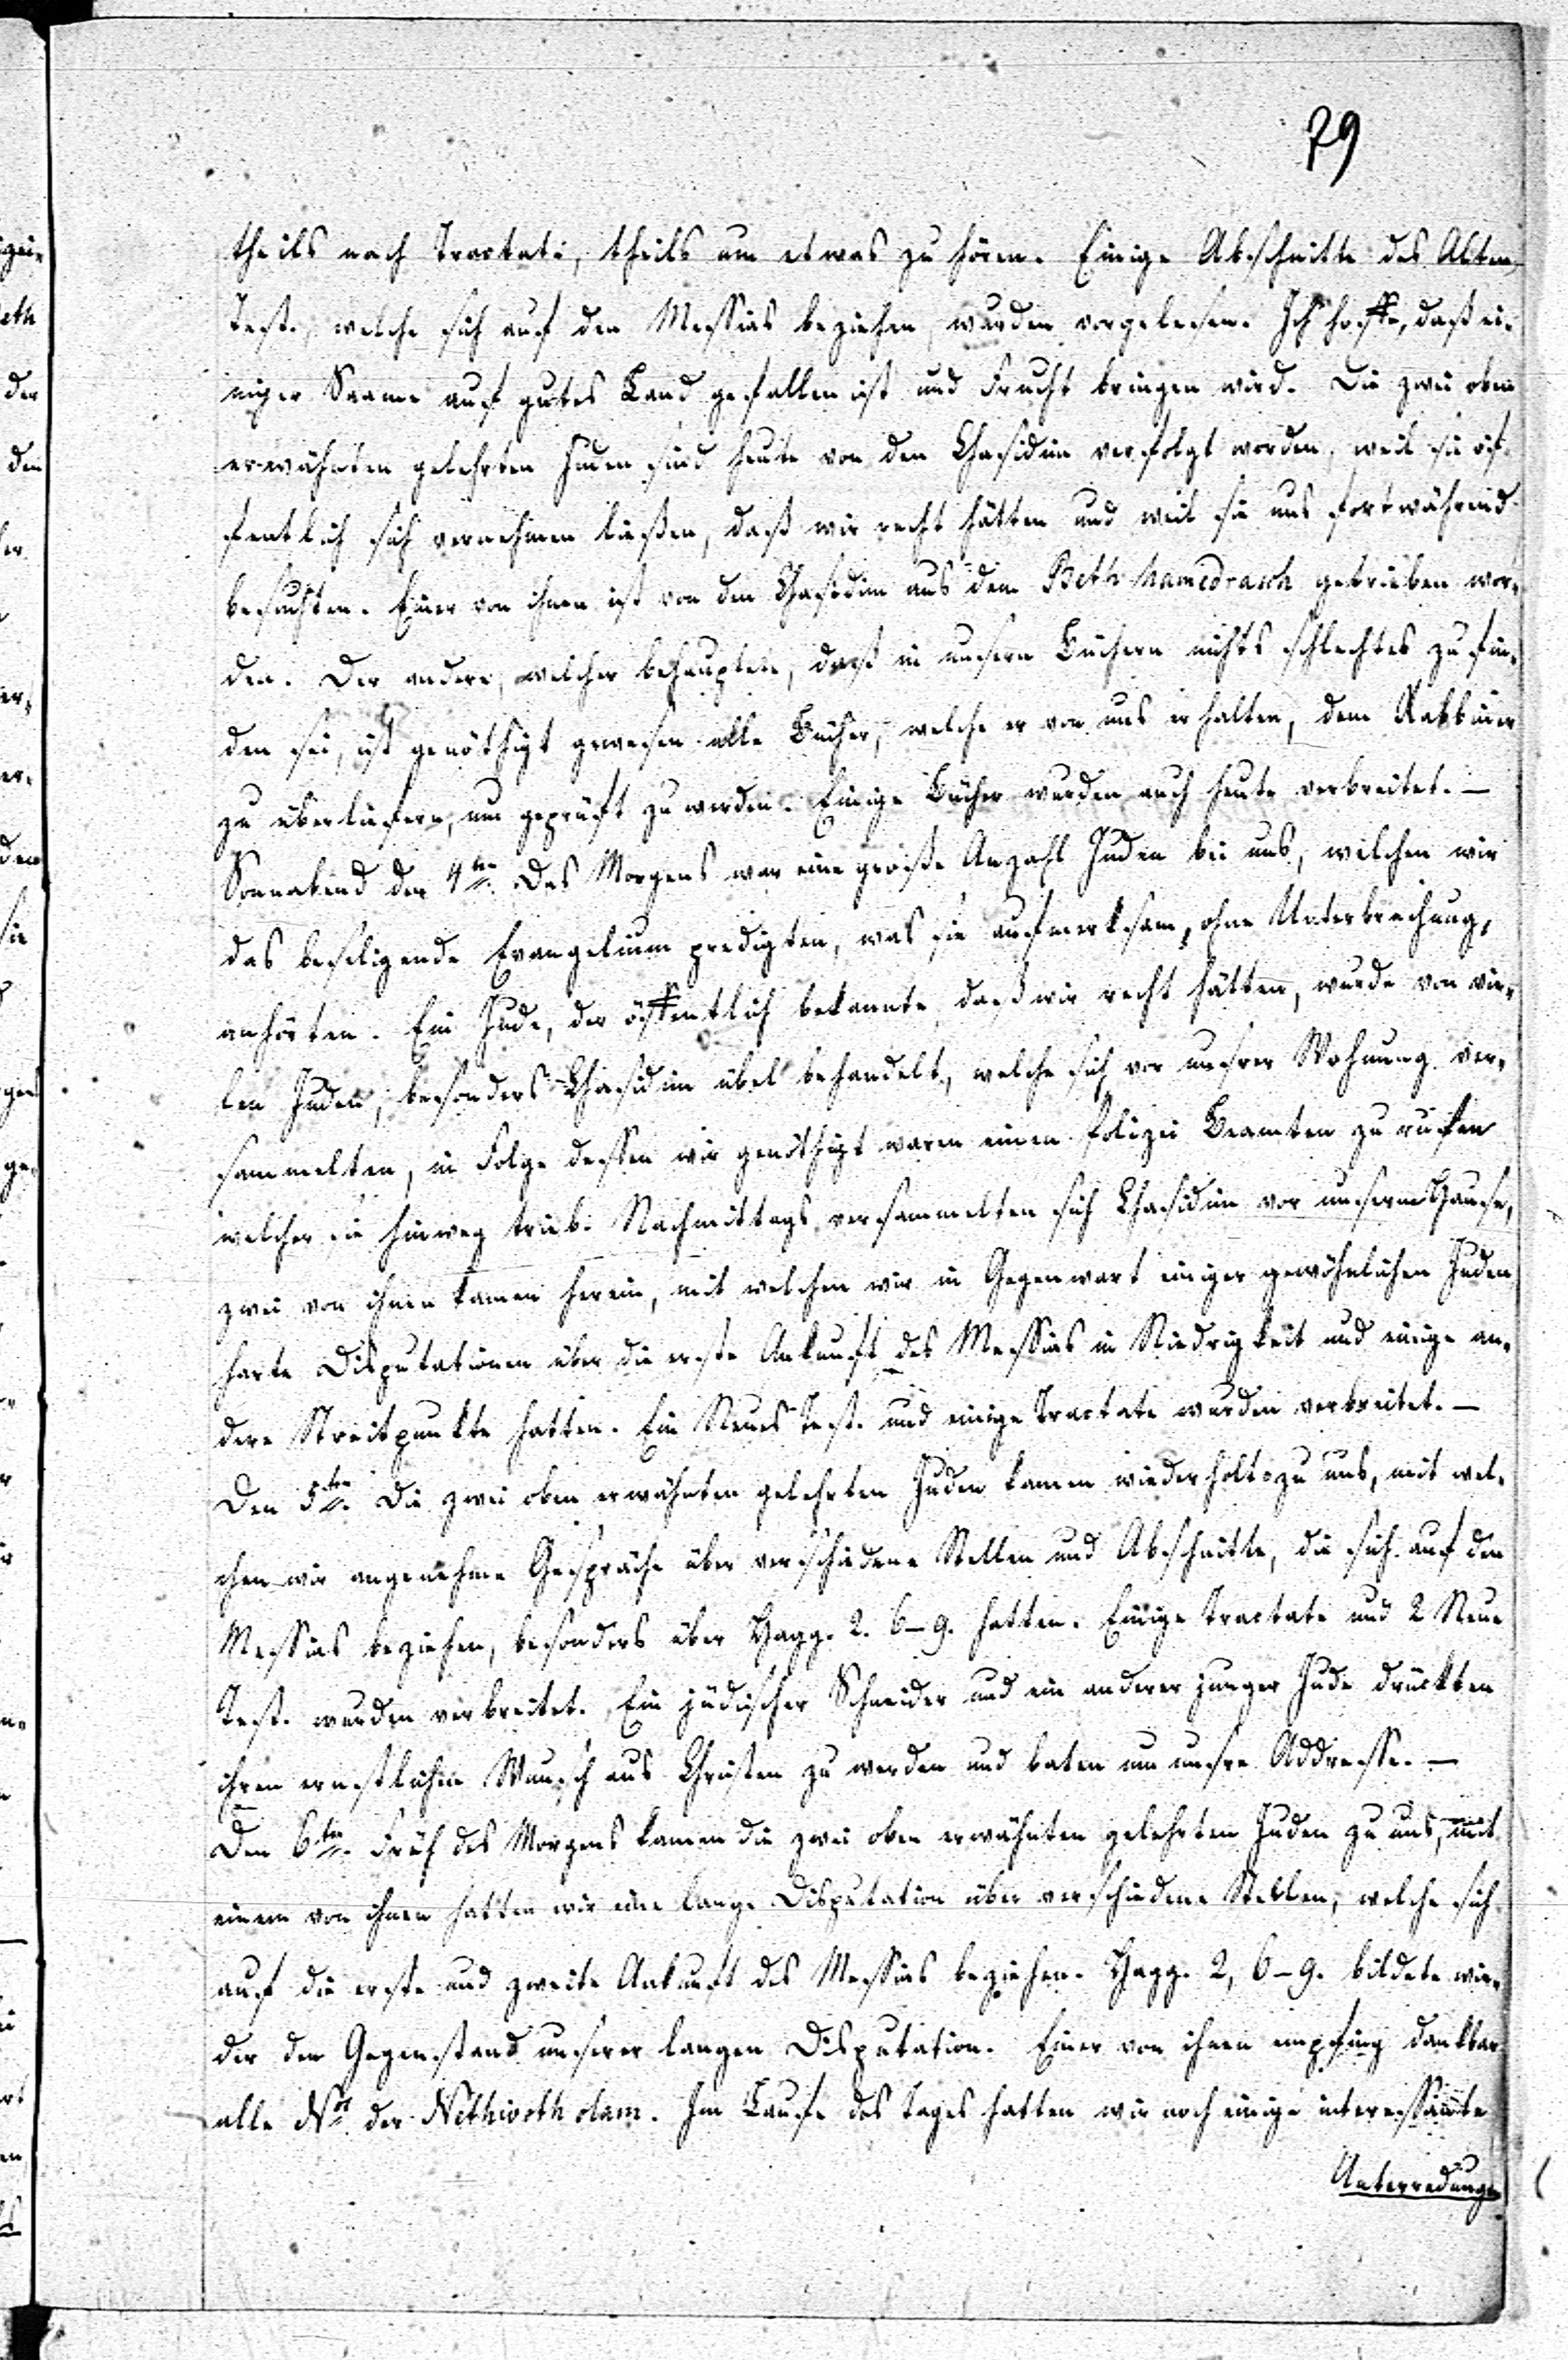 79
theils nach Tractate, theils um etwas zu hören. Einige Abschnitte des Alten
Test., welche sich auf den Messias beziehen, wurden vorgelesen. Ich hoffe, daß ei-
niger Saame auf gutes Land gefallen ist und Frucht bringen wird. Die zwei oben
erwähnten gelehrten Juden sind heute von den Chasidim verfolgt worden, weil sie öf-
fentlich sich vernehmen ließen, daß wir recht hätten und weil sie uns fortwährend
besuchten. Einer von ihnen ist von den Chasidim aus dem Beth hamedrasch getrieben wor-
den. Der andere, welcher behauptete, daß in unsern Büchern nichts schlechtes zu fin-
den sei, ist genöthigt gewesen alle Bücher, welche er von uns erhalten, dem Rabbiner
zu überliefern, um geprüft zu werden. Einige Bücher wurden auch heute verbreitet. —
Sonnabend den 4ten. Des Morgens war eine große Anzahl Juden bei uns, welchen wir
das beseligende Evangelium predigten, was sie aufmerksam, ohne Unterbrechung,
anhörten. Ein Jude, der öffentlich bekannte, daß wir recht hätten, wurde von vie-
len Juden, besonders Chasidim übel behandelt, welche sich vor unsrer Wohnung ver-
sammelten, in Folge dessen wir genöthigt waren einen Polizei Beamten zu rufen
welcher sie hinweg trieb. Nachmittags versammelten sich Chasidim vor unserm Hause,
zwei von ihnen kamen herein, mit welchen wir in Gegenwart einiger gewöhnlichen Juden
harte Disputationen über die erste Ankunft des Messias in Niedrigkeit und einige an-
dere Streitpunkte hatten. Ein Neues Test. und einige Tractate wurden verbreitet. —
Den 5ten. Die zwei oben erwähnten gelehrten Juden kamen wiederholt zu uns, mit wel-
chen wir angenehme Gespräche über verschiedene Stellen und Abschnitte, die sich auf den
Messias beziehen, besonders über Hagg. 2. 6–9. hatten. Einige Tractate und 2 Neue
Test. wurden verbreitet. Ein jüdischer Schneider und ein anderer junger Jude drückten
ihren ernstlichen Wunsch aus Christen zu werden und baten um unsre Addresse. —
Den 6ten. Früh des Morgens kamen die zwei oben erwähnten gelehrten Juden zu uns, mit
einem von ihnen hatten wir eine lange Disputation über verschiedene Stellen, welche sich
auf die erste und zweite Ankunft des Messias beziehen. Hagg. 2, 6–9. bildete wie-
der den Gegenstand unserer langen Disputation. Einer von ihnen empfing dankbar
alle Nos. der Nethivoth olam. Im Laufe des Tages hatten wir noch einige interessante
Unterredungen